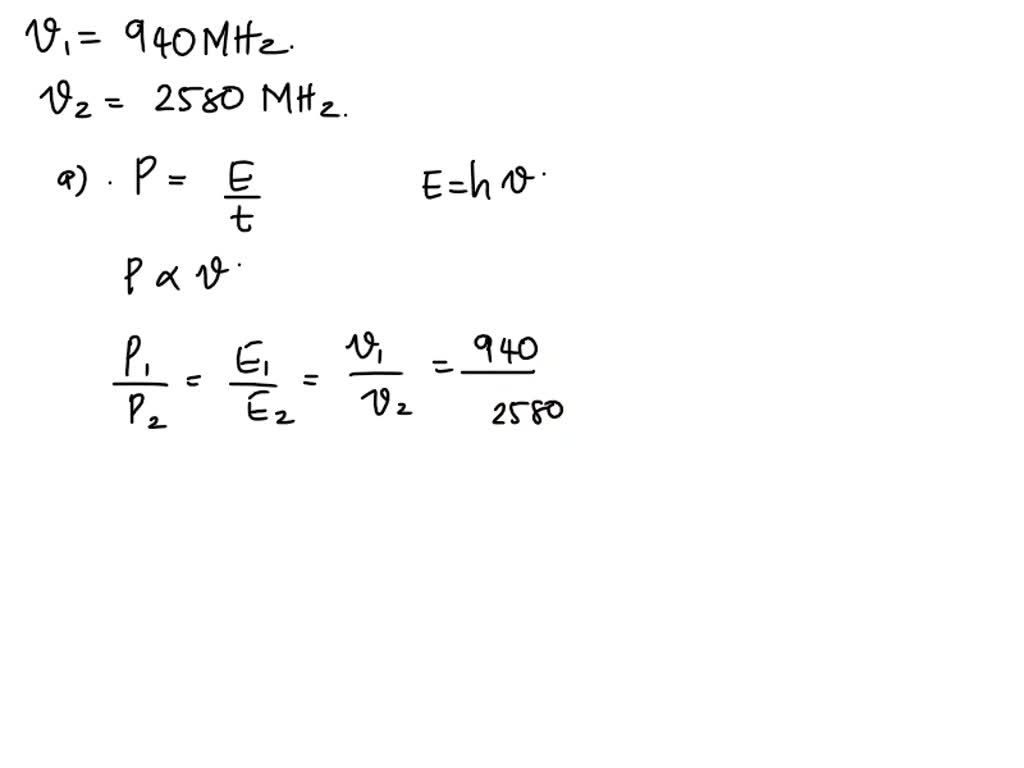 ν₁ = 940 MHz.
ν₂ = 2580 MHz.
a) . P = E/t E = hν.
P ∝ ν.
P₁/P₂ = E₁/E₂ = ν₁/ν₂ = 940/2580